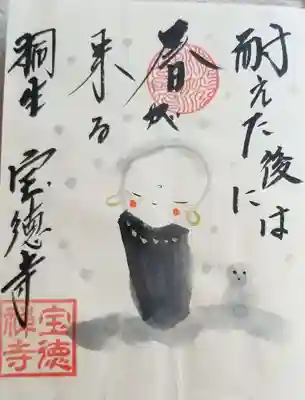 耐えた後に
は
春が
来る
桐生 宝徳寺
宝徳
禅寺